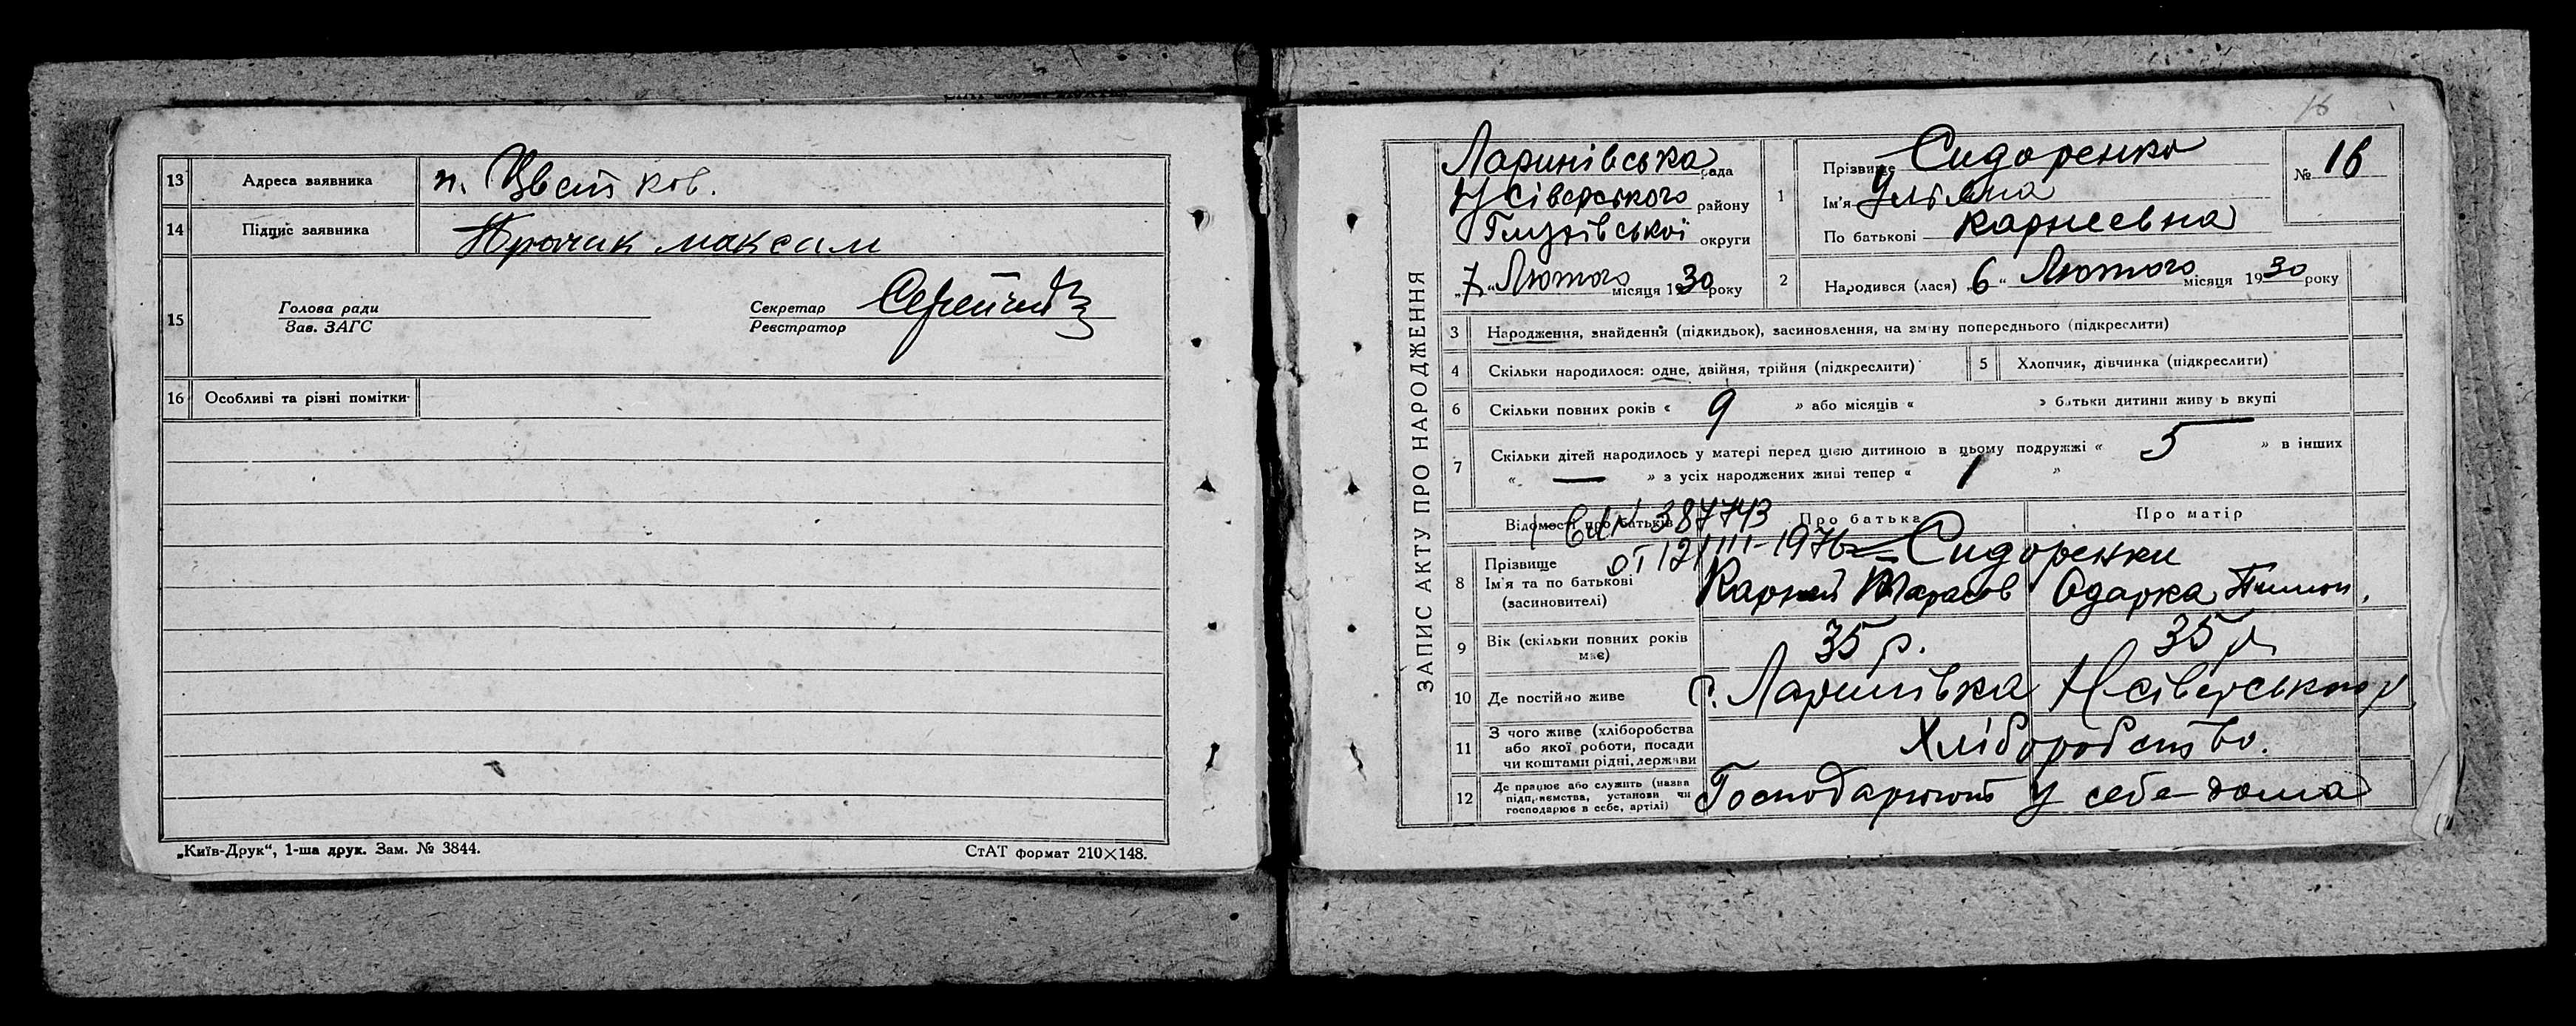 13 Адреса заявника п. Цвєтков.
14 Підпис заявника максим
15 Голова ради
Зав. ЗАГС
Секретар
Реєстратор
16 Особливі та різні помітки
„Київ-Друк“, 1-ша друк. Зам. № 3844.
СтАТ формат 210×148.
16
ЗАПИС АКТУ ПРО НАРОДЖЕННЯ
Ларинівська рада
Н Сіверського району
Глухівської округи
„7“ Лютого місяця 1930 року
1 Прізвище Сидоренко
Ім'я Уляна
По батькові Карнеевна
№ 16
2 Народився (лася) „6“ Лютого місяця 1930 року
3 Народження, знайдення (підкидьок), засиновлення, на зміну попереднього (підкреслити)
4 Скільки народилося: одне, двійня, трійня (підкреслити)
5 Хлопчик, дівчинка (підкреслити)
6 Скільки повних років « 9 » або місяців « » батьки дитини живуть вкупі
7 Скільки дітей народилось у матері перед цією дитиною в цьому подружжі « 5 » в інших
« — » з усіх народжених живі тепер « 1 »
Відомості про батьків Про батька Про матір
387743
от 12/III-1976
8 Прізвище
Ім'я та по батькові
(засиновителі)
Сидоренки
Карней Тарасов Одарка
9 Вік (скільки повних років
має) 35 р. 35 р
10 Де постійно живе с. Ларинівка Н сіверського р
11 З чого живе (хліборобства
або якої роботи, посади
чи коштами рідні, держави
Хліборобство.
12 Де працює або служить (назва
підприємства, установи чи
господарює в себе, артілі)
Господарюють у себе дома